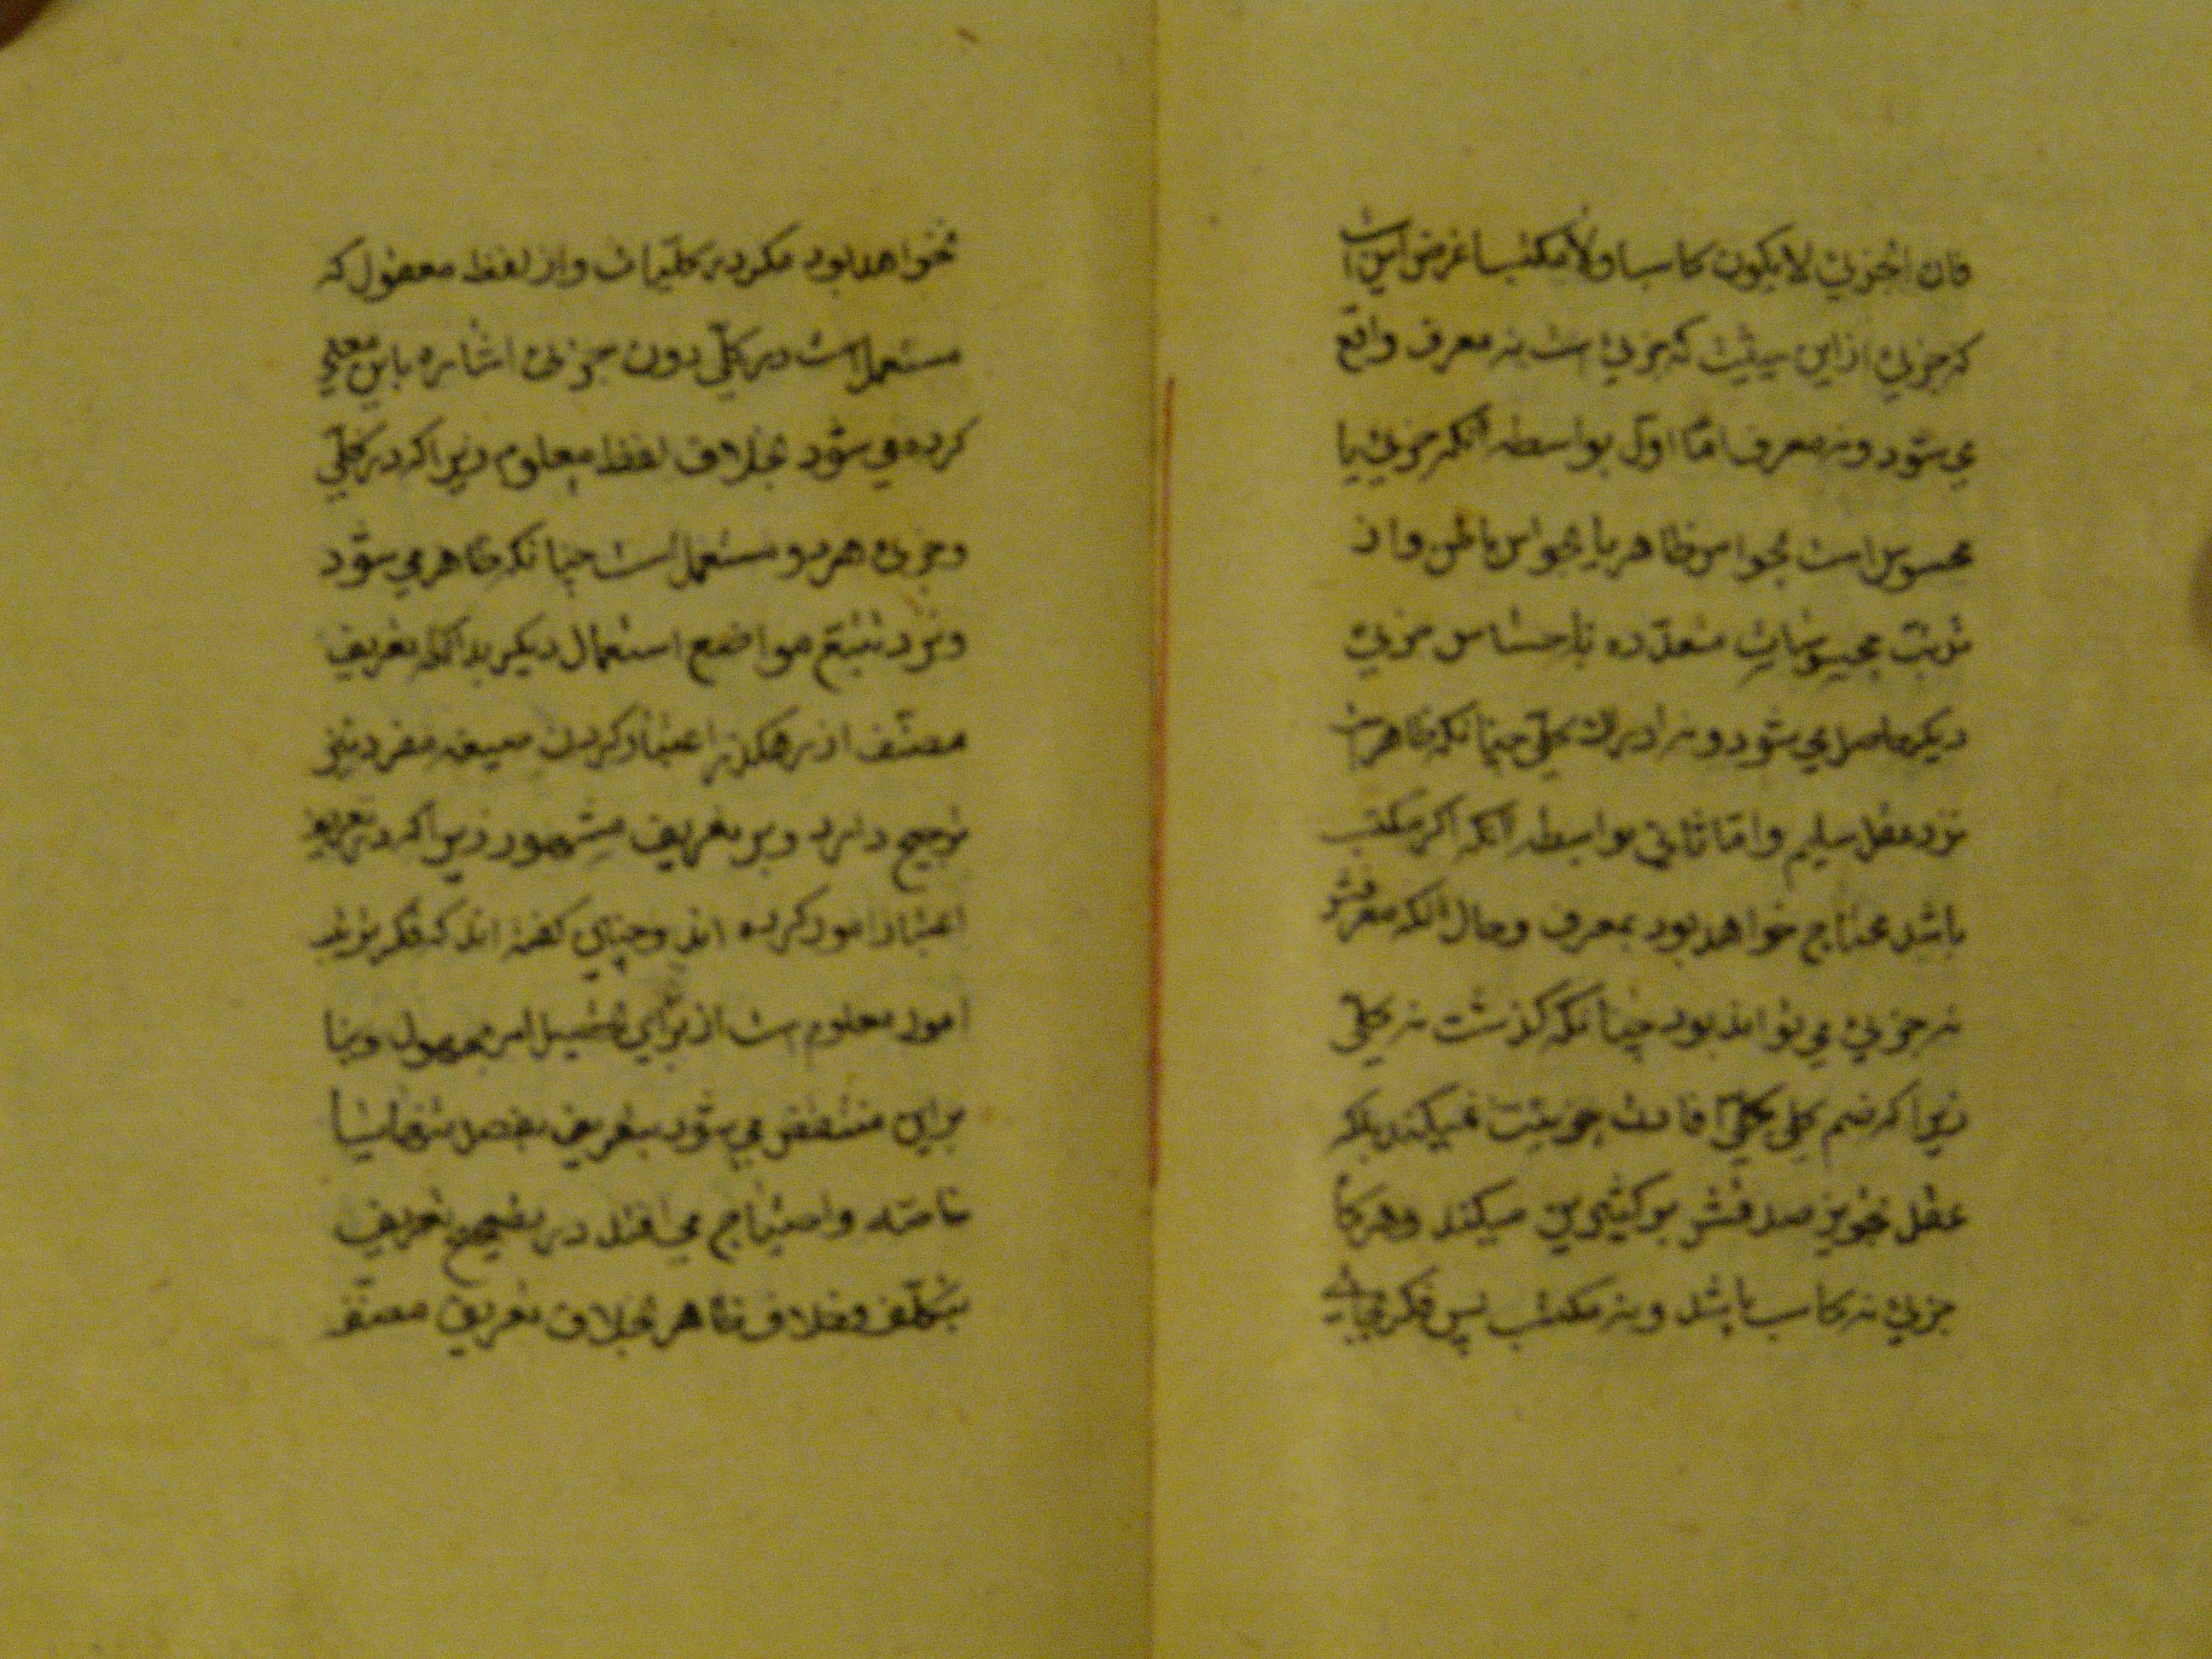 فان الجزئي لا يكون كاسبا ولا مكتسبا غرض اين است
كه جزئي از اين حيثيت كه جزئي است نه معرف واقع
مي شود ونه معرف امّا اوّل بواسطه آنكه جزئي يا
محسوس است بحواس ظاهر يا بحواس باطن واز
ترتّب محسوسات متعدّده احساس جزئي
ديكر حاصل مي شود ونه ادراك كلّي چنانكه ظاهر است
نزد عقل سليم وامّا ثاني بواسطه آنكه اكر مكتسب
باشد محتاج خواهد بود بمعرف وحال آنكه معرفش
نه جزئي مي تواند بود چنانكه كذشت نه كلّي
زيرا كه ضم كلي بكلّي افادت جزئيّت نميكند بلكه
عقل تجويز صدقش بر كثيرين ميكند وهركاه
جزئي نه كاسب باشد ونه مكتسب پس فكر
نخواهد بود مكر در كلّيات واز لفظ معقول كه
مستعمل است در كلّي دون جزئي اشاره باين معني
كرده مي شود بخلاف لفظ معلوم زيرا كه در كلّي
وجزئي هر دو مستعمل است چنانكه ظاهر مي شود
ونزد تتبّع مواضع استعمال ديكر بدانكه تعريف
مصنّف از رهكذر اعتبار كردن صيغه مفرد نيز
ترجيح دارد وبر تعريف مشهور زيرا كه در تعريف
اعتبار امور كرده اند وچنين كفته اند كه فكر ترتيب
امور معلوم است از براي تحصيل امر مجهول وبنا
براين منتقض مي شود بتعريف بفصل تنها يا
خاصّه واحتياج مي افتد در تصحيح تعريف
بتكلّف وخلاف ظاهر بخلاف تعريف مصنّف